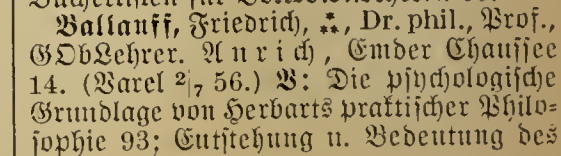 Ballauff, Friedrich, ⁂, Dr. phil., Prof.,
GObLehrer. Aurich, Emder Chaussee
14. (Varel 2|7 56.) V: Die psychologische
Grundlage von Herbarts praktischer Philo=
sophie 93; Entstehung u. Bedeutung des